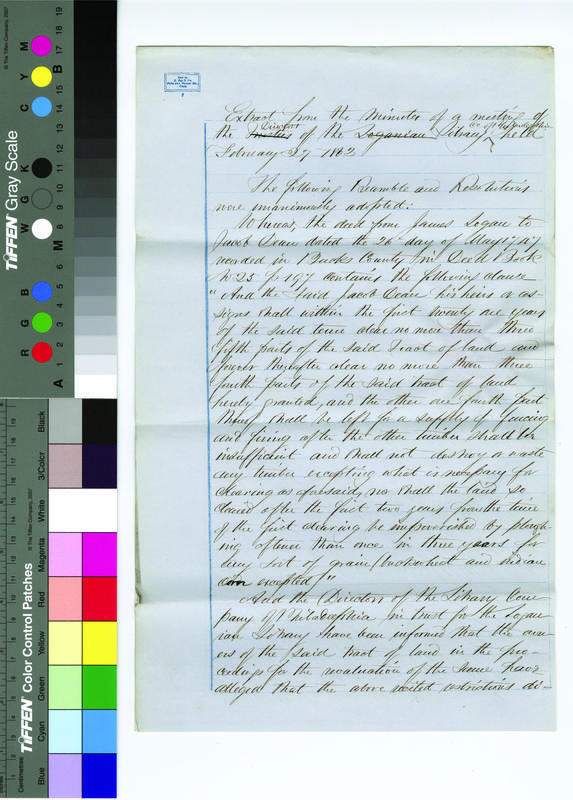 Extract from the Minutes of a meeting of
the ~~Trustees~~ Directors of the ~~Loganian~~ Library Co of Philadelphia held
February 27 1862
The following Preamble and Resolutions
were unanimously adopted:
Whereas, the deed from James Logan to
Jacob Dean dated the 26 day of May 1747
recorded in Bucks County in Deed Book
No 25 p 197 contains the following clause
"And the said Jacob Dean his heirs or as-
signs shall within the first twenty one years
of the said term clear no more than three
fifth parts of the said Tract of land and
forever thereafter clear no more than three
fourth parts of the said tract of land
hereby granted, and the other one fourth part
thereof shall be left for a supply of fencing
and firing after the other timber shall be
insufficient and shall not destroy or waste
any timber excepting what is necessary for
clearing as aforesaid, nor shall the land so
cleared after the first two years from the time
of the first clearing be impoverished by plough-
ing oftener than once in three years for
any sort of grain (buckwheat and indian
corn excepted)"
And the Directors of the Library Com
pany of Philadelphia in trust for the Logan
ian Library have been informed that the own-
ers of the said tract of land in the pro-
ceedings for the revaluation of the same have
alleged that the above recited restrictions di-
TIFFEN Gray Scale
© The Tiffen Company, 2007
R G B W G K C Y M
A 1 2 3 4 5 6 M 8 9 10 11 12 13 14 15 B 17 18 19
TIFFEN Color Control Patches
© The Tiffen Company, 2007
Centimetres
Blue
Cyan
Green
Yellow
Red
Magenta
White
3/Color
Black